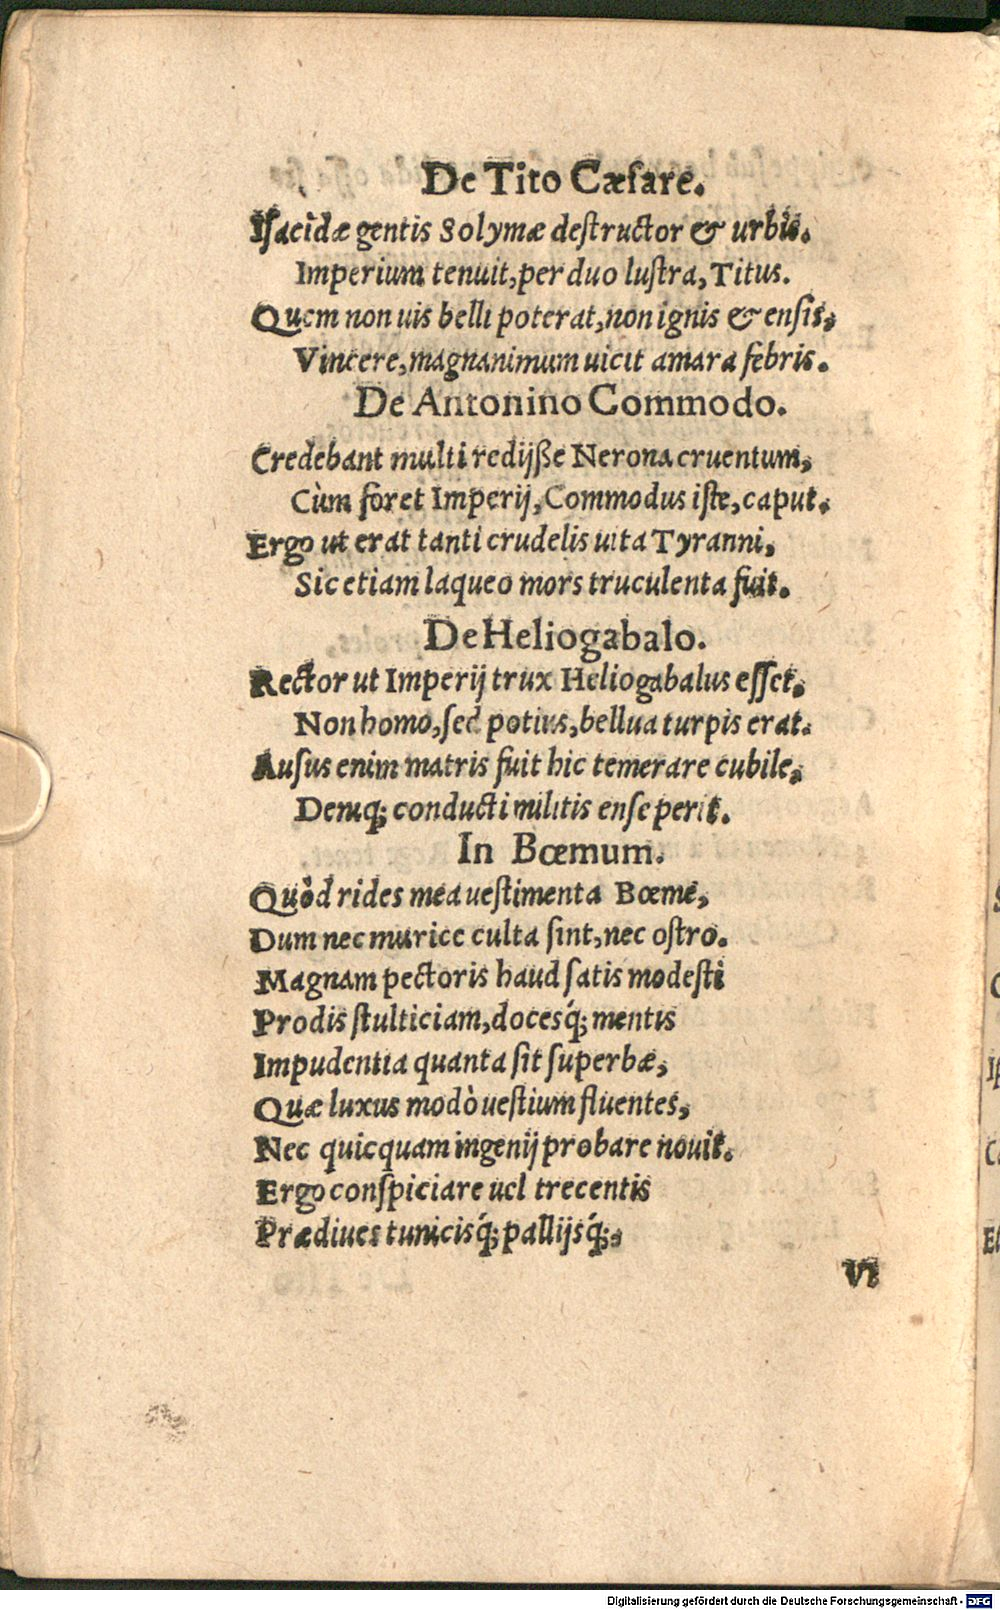 De Tito Cæsare.
Isacidæ gentis Solymæ destructor & urbis.
Imperium tenuit, per duo lustra, Titus.
Quem non uis belli poterat, non ignis & ensis,
Vincere, magnanimum uicit amara febris.
De Antonino Commodo.
Credebant multi redijße Nerona cruentum,
Cùm foret Imperij, Commodus iste, caput.
Ergo ut erat tanti crudelis uita Tyranni,
Sic etiam laqueo mors truculenta fuit.
De Heliogabalo.
Rector ut Imperij trux Heliogabalus esset.
Non homo, sed potius, bellua turpis erat.
Ausus enim matris fuit hic temerare cubile,
Deniq; conducti militis ense perit.
In Bœmum.
Quòd rides mea uestimenta Bœme,
Dum nec murice culta sint, nec ostro.
Magnam pectoris haud satis modesti
Prodis stulticiam, docesq́; mentis
Impudentia quanta sit superbæ,
Quæ luxus modò uestium fluentes,
Nec quicquam ingenij probare nouit.
Ergo conspiciare uel trecentis
Prædiues tunicisq́; pallijsq́;,
Vt
Digitalisierung gefördert durch die Deutsche Forschungsgemeinschaft - DFG